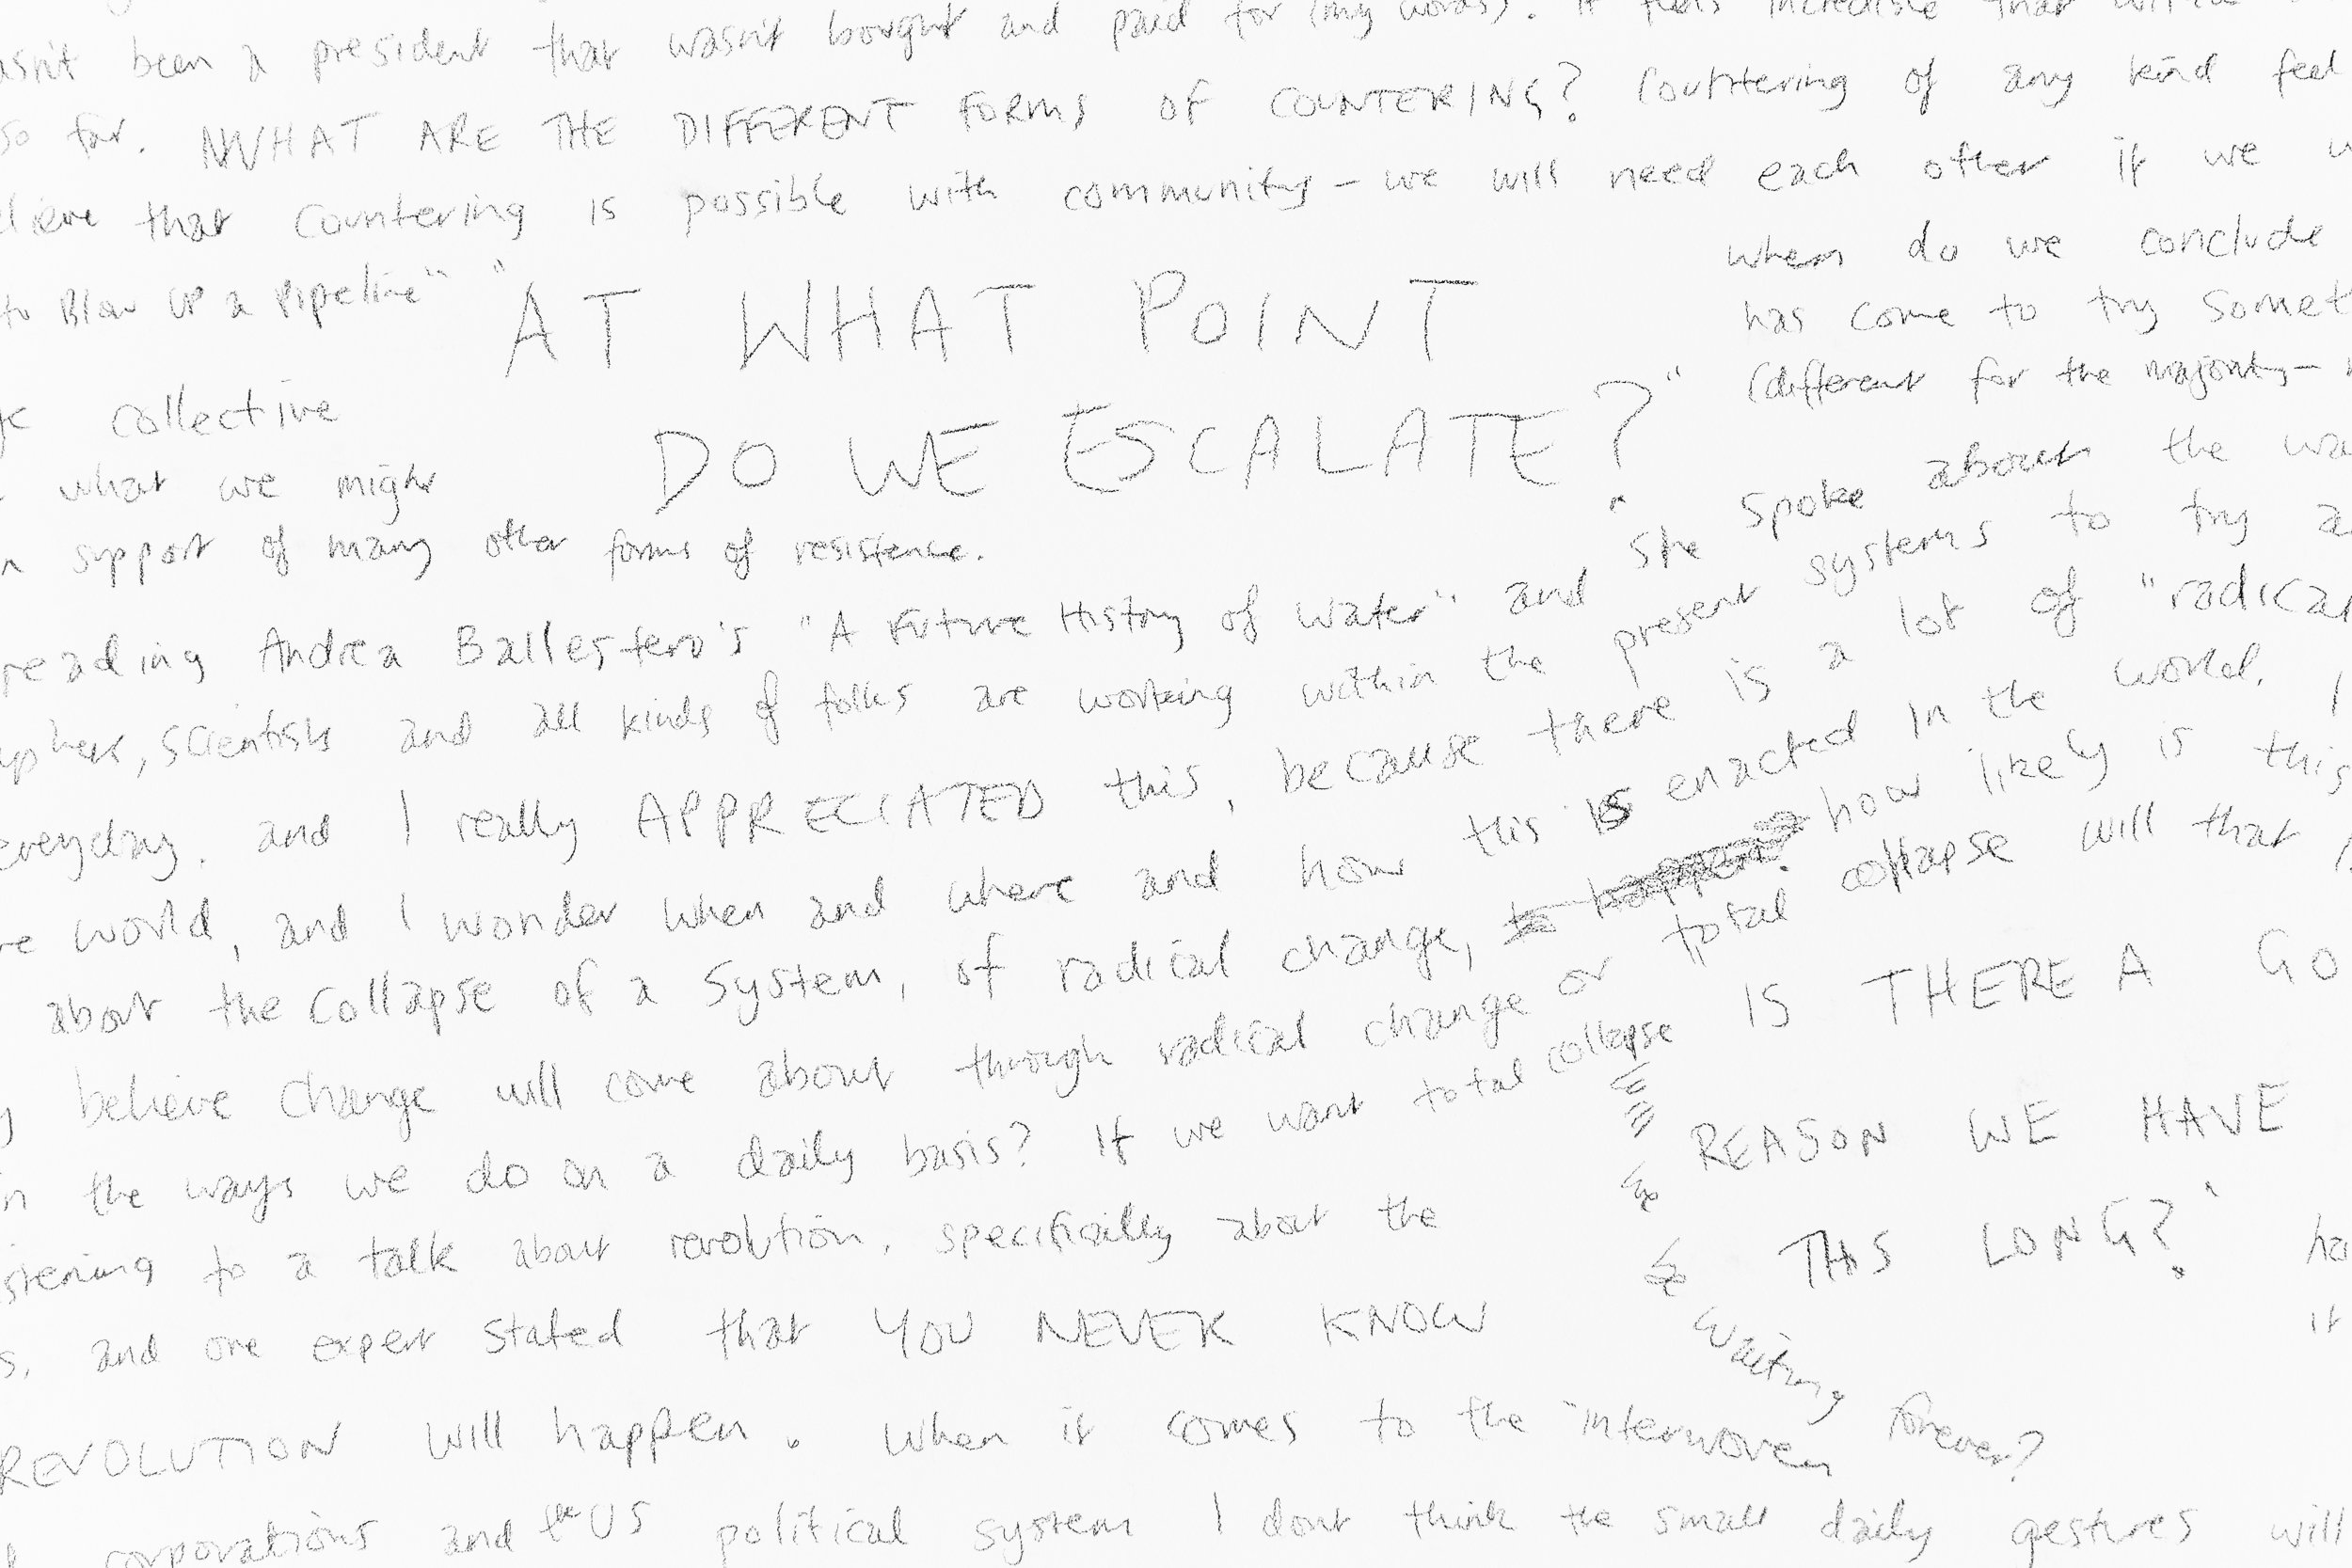 asn't been a president that wasn't bought and paid for (my words). It feels incredible that
so far. NWHAT ARE THE DIFFERENT FORMS OF COUNTERING? Countering of any kind feel
elieve that countering is possible with community - we will need each other if we w
to Blow UP a Pipeline" "AT WHAT POINT
DO WE ESCALATE?"
when do we conclude
has come to try somet
(different for the majority -
collective
what we might
n support of many other forms of resistence.
reading Andrea Ballestero's "A Future History of Water" and she spoke about the wa
aphers, scientists and all kinds of folks are working within the present systems to try a
everyday. and I really APPRECIATED this, because there is a lot of "radical
re world, and I wonder when and where and how this is enacted in the world. I
about the collapse of a system, of radical change, to happen? how likely is this
y believe change will come about through radical change or total collapse will that
in the ways we do on a daily basis? If we want total collapse will we be waiting forever?
IS THERE A GO
REASON WE HAVE
THIS LONG?" ha
it
istening to a talk about revolution, specifically about the
s, and one expert stated that YOU NEVER KNOW
REVOLUTION will happen. When it comes to the "interwoven
corporations and the US political system I dont think the small daily gestures will